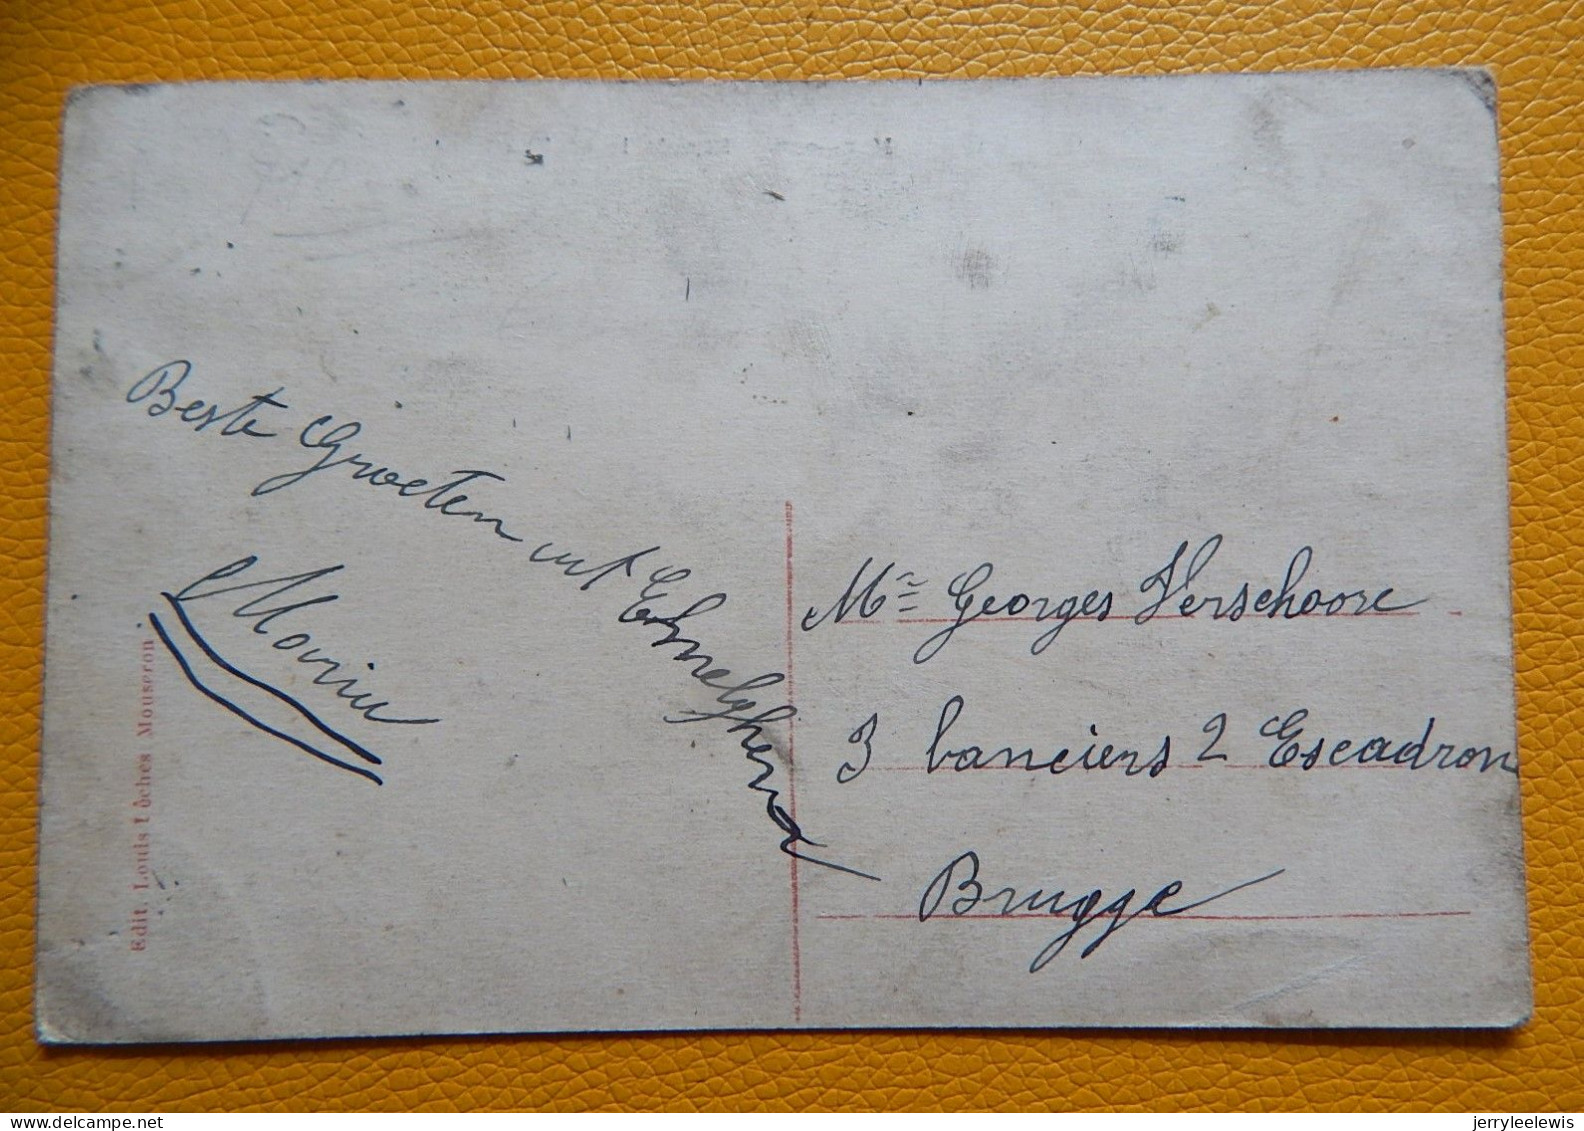 Beste Groeten uit Elverdinghe
Mr Georges Verschoore
3 lanciers 2 Escadron
Brugge
Edit. Louis Loches Mouscron.
jerryleelewis
www.delcampe.net